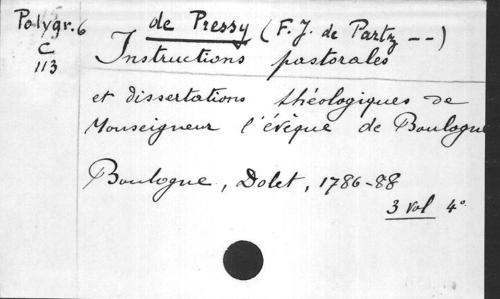 Polygr. 6
C
113
de Pressy (F. J. de Partz --)
Instructions pastorales
et dissertations théologiques de
Monseigneur l'évêque de Boulogne
Boulogne, Dolet, 1786-88
3 vol 4°